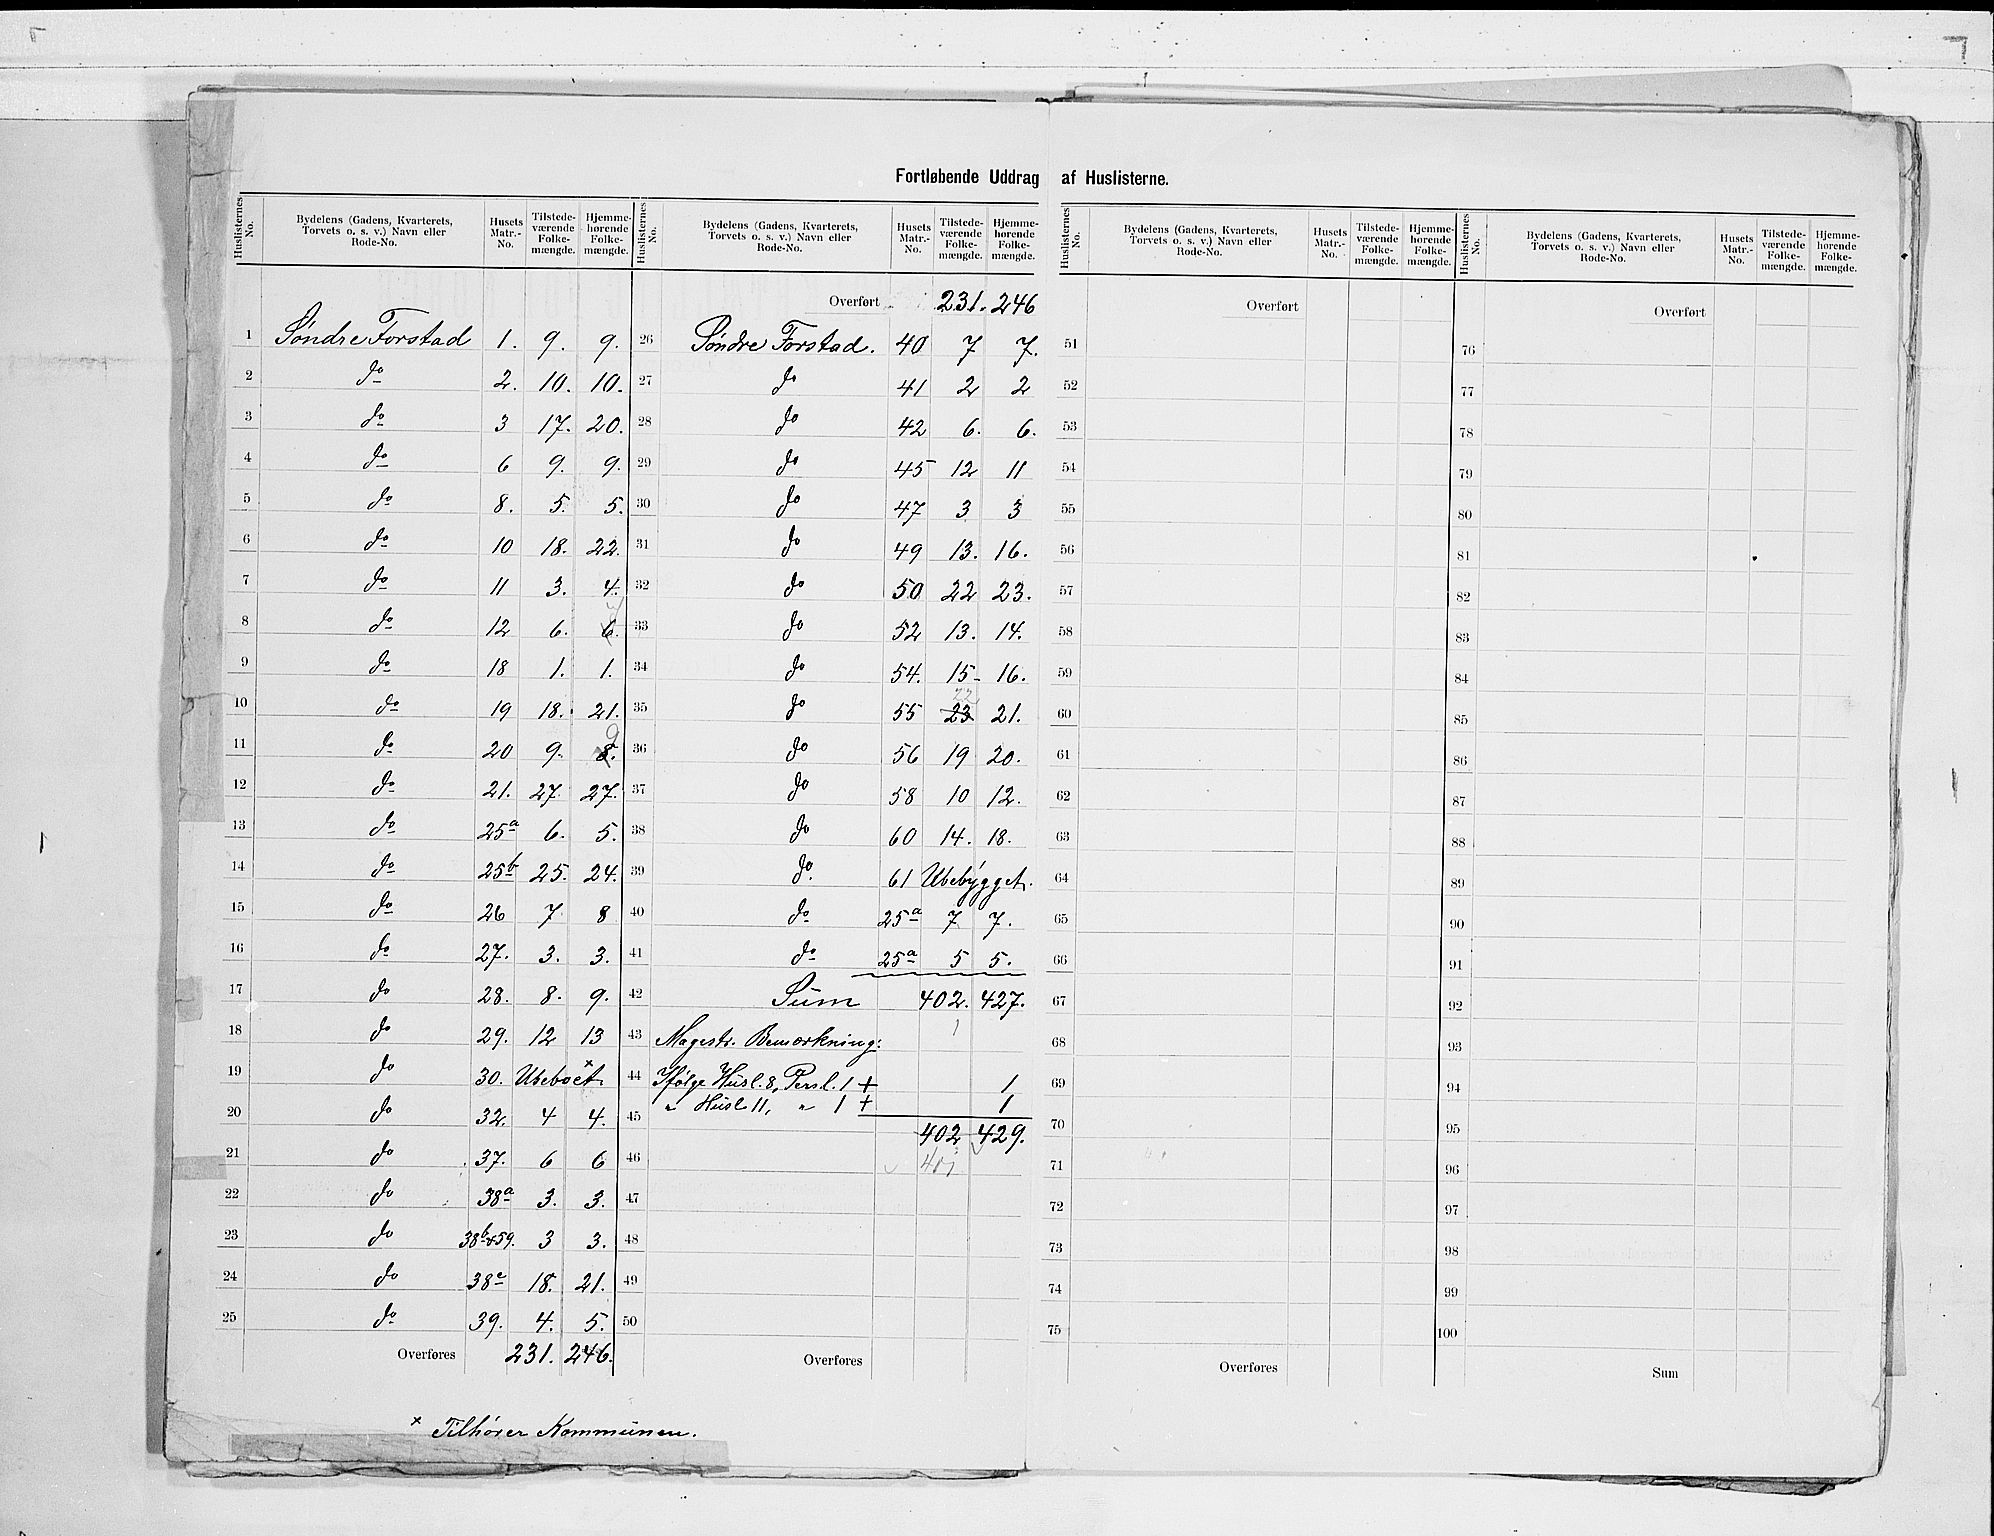 Fortløbende Uddrag af Huslisterne.
Huslisternes No. Bydelens (Gadens, Kvarterets, Torvets o. s. v.) Navn eller Rode-No. Husets Matr.-No. Tilstedeværende Folkemængde. Hjemmehørende Folkemængde.
1 Søndre Forstad 1. 9. 9.
2 do 2. 10. 10.
3 do 3 17. 20.
4 do 6 9. 9.
5 do 8. 5. 5.
6 do 10 18. 22.
7 do 11 3. 4.
8 do 12 6. 6.
9 do 18 1. 1.
10 do 19 18. 21.
11 do 20 9. 8. 9
12 do 21. 27. 27.
13 do 25a 6. 5.
14 do 25b 25. 24.
15 do 26 7 8
16 do 27. 3. 3.
17 do 28. 8. 9.
18 do 29. 12 13
19 do 30. Ubeboet x
20 do 32. 4 4.
21 do 37. 6 6
22 do 38a 3. 3.
23 do 38b & 59. 3 3.
24 do 38c 18. 21.
25 do 39. 4. 5.
Overføres 231. 246.
x Tilhører Kommunen.
Huslisternes No. Bydelens (Gadens, Kvarterets, Torvets o. s. v.) Navn eller Rode-No. Husets Matr.-No. Tilstedeværende Folkemængde. Hjemmehørende Folkemængde.
Overført 231. 246
26 Søndre Forstad. 40 7 7.
27 do 41 2 2
28 do 42 6. 6.
29 do 45 12 11
30 do 47 3 3
31 do 49 13. 16.
32 do 50 22 23.
33 do 52 13. 14.
34 do 54. 15- 16.
35 do 55 23 22 21.
36 do 56 19 20.
37 do 58 10 12.
38 do 60 14. 18.
39 do. 61 Ubebygget.
40 do 25a 7 7.
41 do 25a 5 5.
42 Sum 402. 427.
43 Magestr. Bemærkning:
44 Ifølge Husl. 8, Persl. 1 + 1
45 " Husl 11, " 1 + 1
402 429.
46 401
47
48
49
50
Overføres
Huslisternes No. Bydelens (Gadens, Kvarterets, Torvets o. s. v.) Navn eller Rode-No. Husets Matr.-No. Tilstedeværende Folkemængde. Hjemmehørende Folkemængde.
Overført
51
52
53
54
55
56
57
58
59
60
61
62
63
64
65
66
67
68
69
70
71
72
73
74
75
Overføres
Huslisternes No. Bydelens (Gadens, Kvarterets, Torvets o. s. v.) Navn eller Rode-No. Husets Matr.-No. Tilstedeværende Folkemængde. Hjemmehørende Folkemængde.
Overført
76
77
78
79
80
81
82
83
84
85
86
87
88
89
90
91
92
93
94
95
96
97
98
99
100
Sum